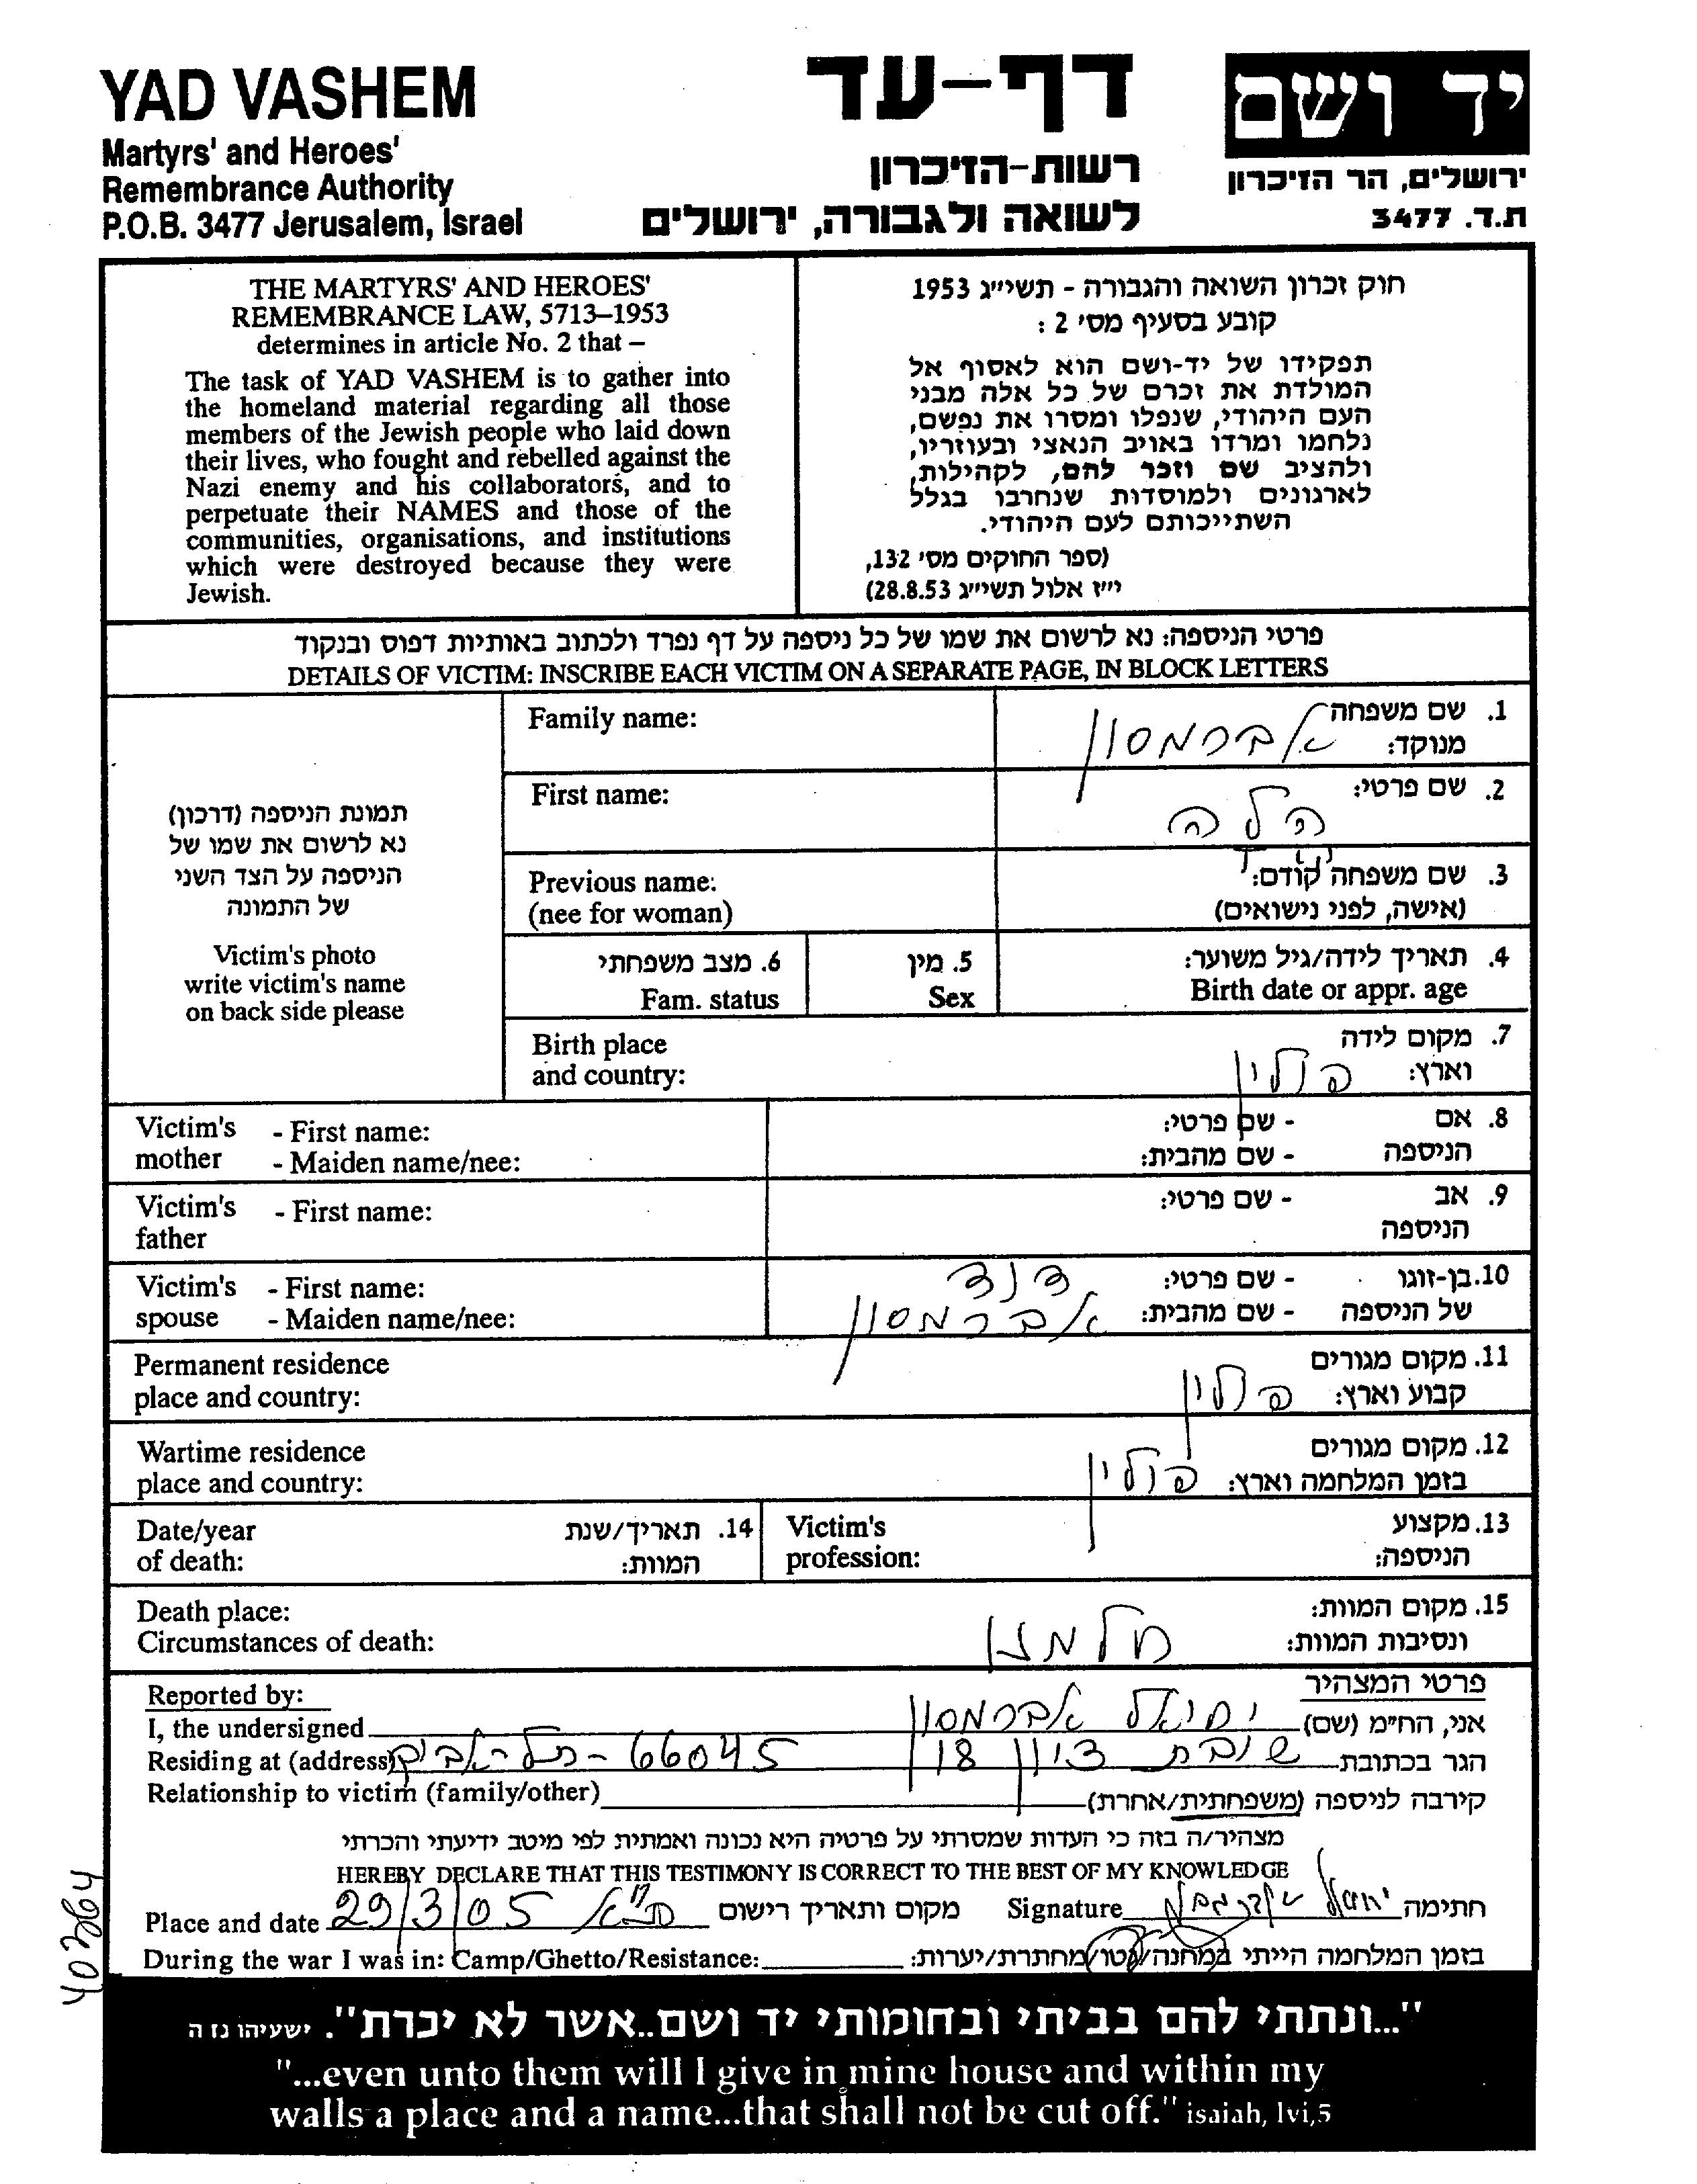 YAD VASHEM
Martyrs' and Heroes'
Remembrance Authority
P.O.B. 3477 Jerusalem, Israel
דף-עד
רשות-הזיכרון
לשואה ולגבורה, ירושלים
יד ושם
ירושלים, הר הזיכרון
ת.ד. 3477
THE MARTYRS' AND HEROES'
REMEMBRANCE LAW, 5713–1953
determines in article No. 2 that –
The task of YAD VASHEM is to gather into
the homeland material regarding all those
members of the Jewish people who laid down
their lives, who fought and rebelled against the
Nazi enemy and his collaborators, and to
perpetuate their NAMES and those of the
communities, organisations, and institutions
which were destroyed because they were
Jewish.
חוק זכרון השואה והגבורה - תשי״ג 1953
קובע בסעיף מס׳ 2 :
תפקידו של יד-ושם הוא לאסוף אל
המולדת את זכרם של כל אלה מבני
העם היהודי, שנפלו ומסרו את נפשם,
נלחמו ומרדו באויב הנאצי ובעוזריו,
ולהציב שם וזכר להם, לקהילות,
לארגונים ולמוסדות שנחרבו בגלל
השתייכותם לעם היהודי.
(ספר החוקים מס׳ 132,
י״ז אלול תשי״ג 28.8.53)
פרטי הניספה: נא לרשום את שמו של כל ניספה על דף נפרד ולכתוב באותיות דפוס ובנקוד
DETAILS OF VICTIM: INSCRIBE EACH VICTIM ON A SEPARATE PAGE, IN BLOCK LETTERS
תמונת הניספה (דרכון)
נא לרשום את שמו של
הניספה על הצד השני
של התמונה
Victim's photo
write victim's name
on back side please
Family name:
1. שם משפחה
מנוקד: אברמסון
First name:
2. שם פרטי:
הלה
Previous name:
(nee for woman)
3. שם משפחה קודם:
(אישה, לפני נישואים)
6. מצב משפחתי
Fam. status
5. מין
Sex
4. תאריך לידה/גיל משוער:
Birth date or appr. age
Birth place
and country:
7. מקום לידה
וארץ: פולין
Victim's mother - First name:
- Maiden name/nee:
8. אם הניספה - שם פרטי:
- שם מהבית:
Victim's father - First name:
9. אב הניספה - שם פרטי:
Victim's spouse - First name:
- Maiden name/nee:
10. בן-זוגו - שם פרטי: דוד
של הניספה - שם מהבית: אברמסון
Permanent residence
place and country:
11. מקום מגורים
קבוע וארץ: פולין
Wartime residence
place and country:
12. מקום מגורים
בזמן המלחמה וארץ: פולין
Date/year
of death:
14. תאריך/שנת
המוות:
Victim's
profession:
13. מקצוע
הניספה:
Death place:
Circumstances of death:
15. מקום המוות:
ונסיבות המוות: חלמנו
Reported by:
פרטי המצהיר
I, the undersigned
אני, הח״מ (שם) יחיאל אברמסון
Residing at (address)
הגר בכתובת שיבת ציון 18 תל-אביב - 66045
Relationship to victim (family/other)
קירבה לניספה (משפחתית/אחרת)
מצהיר/ה בזה כי העדות שמסרתי על פרטיה היא נכונה ואמתית לפי מיטב ידיעתי והכרתי
HEREBY DECLARE THAT THIS TESTIMONY IS CORRECT TO THE BEST OF MY KNOWLEDGE
Place and date 29/3/05 ת״א מקום ותאריך רישום
Signature חתימה
During the war I was in: Camp/Ghetto/Resistance:
בזמן המלחמה הייתי במחנה/גטו/מחתרת/יערות:
"...ונתתי להם בביתי ובחומותי יד ושם..אשר לא יכרת". ישעיהו נז ה
"...even unto them will I give in mine house and within my
walls a place and a name...that shall not be cut off." isaiah, lvi,5